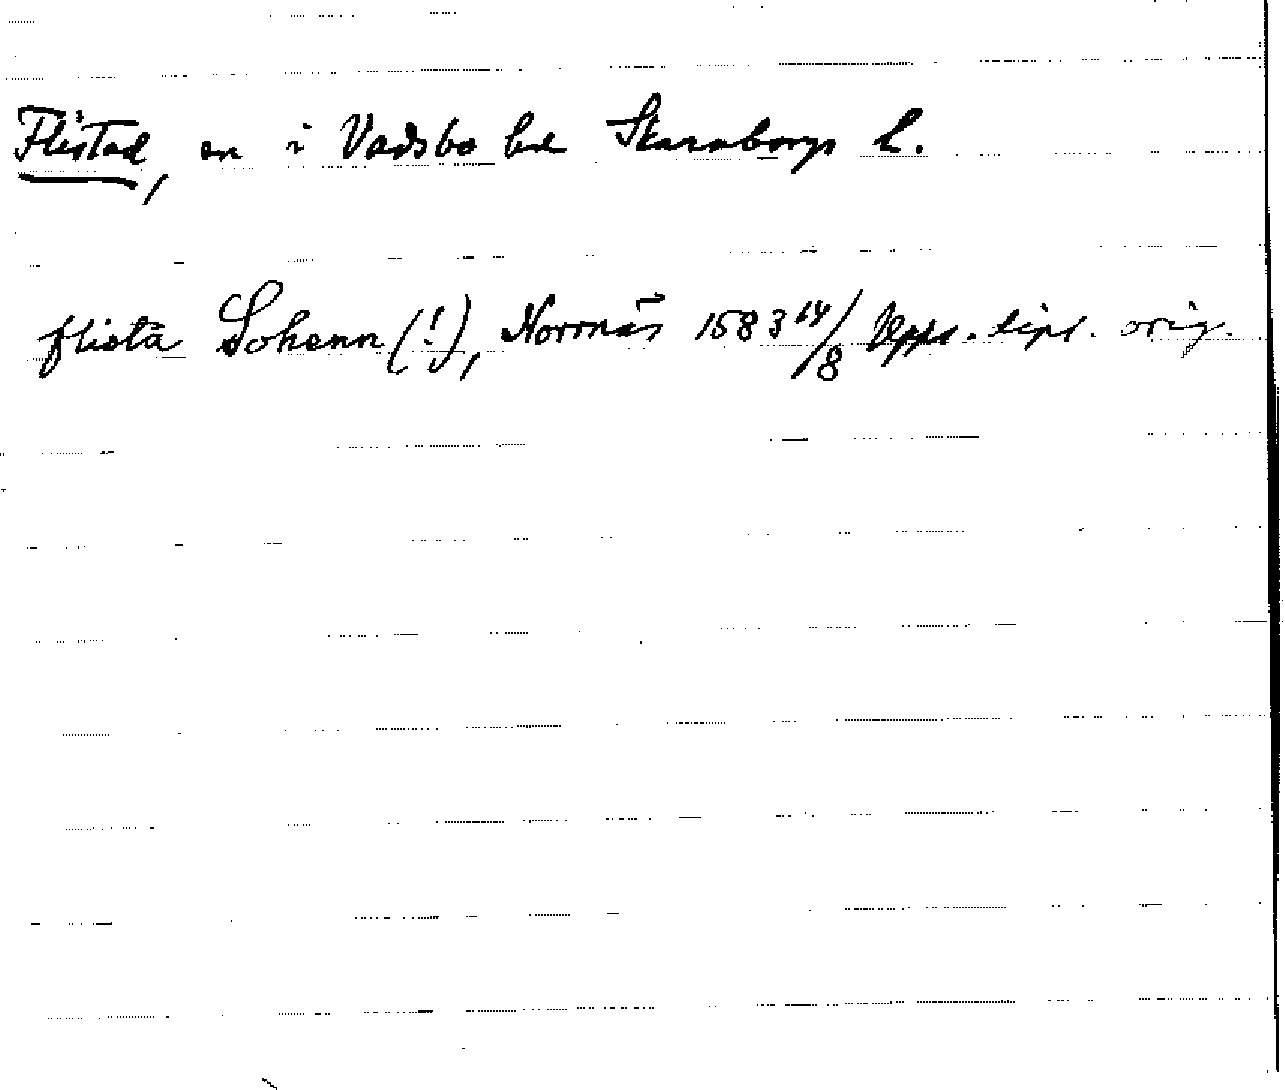 Flistad, sn i Vadsbo hd Skaraborgs l.
flista Sohenn (!), Norrnäs 1583 14/8 Upps. dipl. orig.